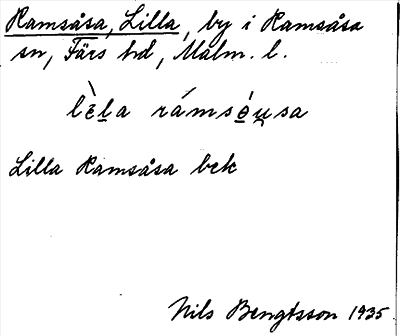 Ramsåsa, Lilla, by i Ramsåsa
sn, Färs hd, Malm. l.
lὲl̠a rámsó̠u̠sa
Lilla Ramsåsa bek
Nils Bengtsson 1935